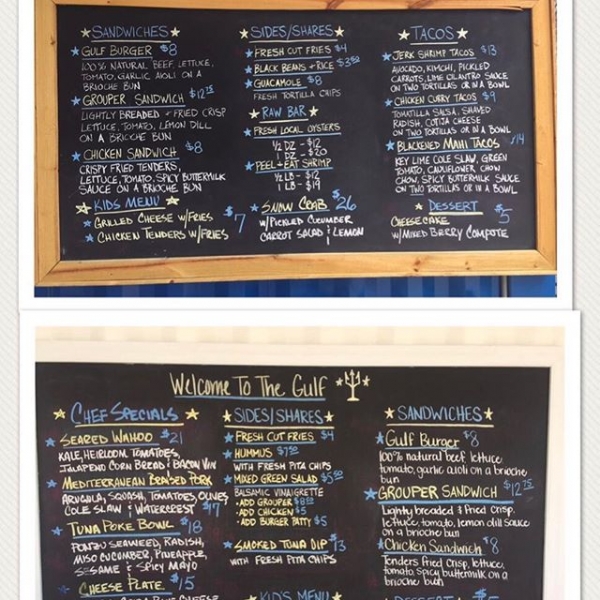 SANDWICHES
GULF BURGER $8
100% NATURAL BEEF, LETTUCE,
TOMATO, GARLIC AIOLI ON A
BRIOCHE BUN
GROUPER SANDWICH $12.75
LIGHTLY BREADED & FRIED CRISP
LETTUCE, TOMATO, LEMON DILL
ON A BRIOCHE BUN
CHICKEN SANDWICH $8
CRISPY FRIED TENDERS,
LETTUCE, TOMATO, SPICY BUTTERMILK
SAUCE ON A BRIOCHE BUN
KIDS MENU
GRILLED CHEESE W/FRIES $7
CHICKEN TENDERS W/FRIES
SIDES/SHARES
FRESH CUT FRIES $4
BLACK BEANS & RICE
GUACAMOLE $8
FRESH TORTILLA CHIPS
RAW BAR
FRESH LOCAL OYSTERS
1/2 DZ - $12
1 DZ - $20
PEEL & EAT SHRIMP
1/2 LB - $12
1 LB - $19
SNOW CRAB $26
W/PICKLED CUCUMBER
CARROT SALAD & LEMON
TACOS
JERK SHRIMP TACOS $13
AVOCADO, KIMCHI, PICKLED
CARROTS, LIME CILANTRO SAUCE
ON TWO TORTILLAS OR IN A BOWL
CHICKEN CURRY TACOS $9
TOMATILLA SALSA, SHAVED
RADISH, COTIJA CHEESE
ON TWO TORTILLAS OR IN A BOWL
BLACKENED MAHI TACOS $14
KEY LIME COLE SLAW, GREEN
TOMATO, CAULIFLOWER CHOW
CHOW, SPICY BUTTERMILK SAUCE
ON TWO TORTILLAS OR IN A BOWL
DESSERT
CHEESECAKE $5
W/MIXED BERRY COMPOTE
Welcome To The Gulf
CHEF SPECIALS
SEARED WAHOO $21
KALE, HEIRLOOM TOMATOES,
JALAPENO CORN BREAD & BACON VIN
MEDITERRANEAN BRAISED PORK
ARUGALA, SQUASH, TOMATOES, OLIVES
COLE SLAW & WATERCREST $17
TUNA POKE BOWL $18
PONZU SEAWEED, RADISH,
MISO CUCUMBER, PINEAPPLE,
SESAME & SPICY MAYO
CHEESE PLATE $15
BLUE CHEESE
SIDES/SHARES
FRESH CUT FRIES $4
HUMMUS $7.50
WITH FRESH PITA CHIPS
MIXED GREEN SALAD $5.50
BALSAMIC VINAIGRETTE
• ADD GROUPER
• ADD CHICKEN $5
• ADD BURGER PATTY $5
SMOKED TUNA DIP $13
WITH FRESH PITA CHIPS
KID'S MENU
SANDWICHES
Gulf Burger $8
100% natural beef, lettuce
tomato, garlic aioli on a brioche
bun
GROUPER SANDWICH $12.75
Lightly breaded & Fried Crisp,
lettuce, tomato, lemon dill sauce
on a brioche bun
Chicken Sandwich $8
Tenders fried crisp, lettuce,
tomato, Spicy buttermilk on a
brioche bun
DESSERT $5